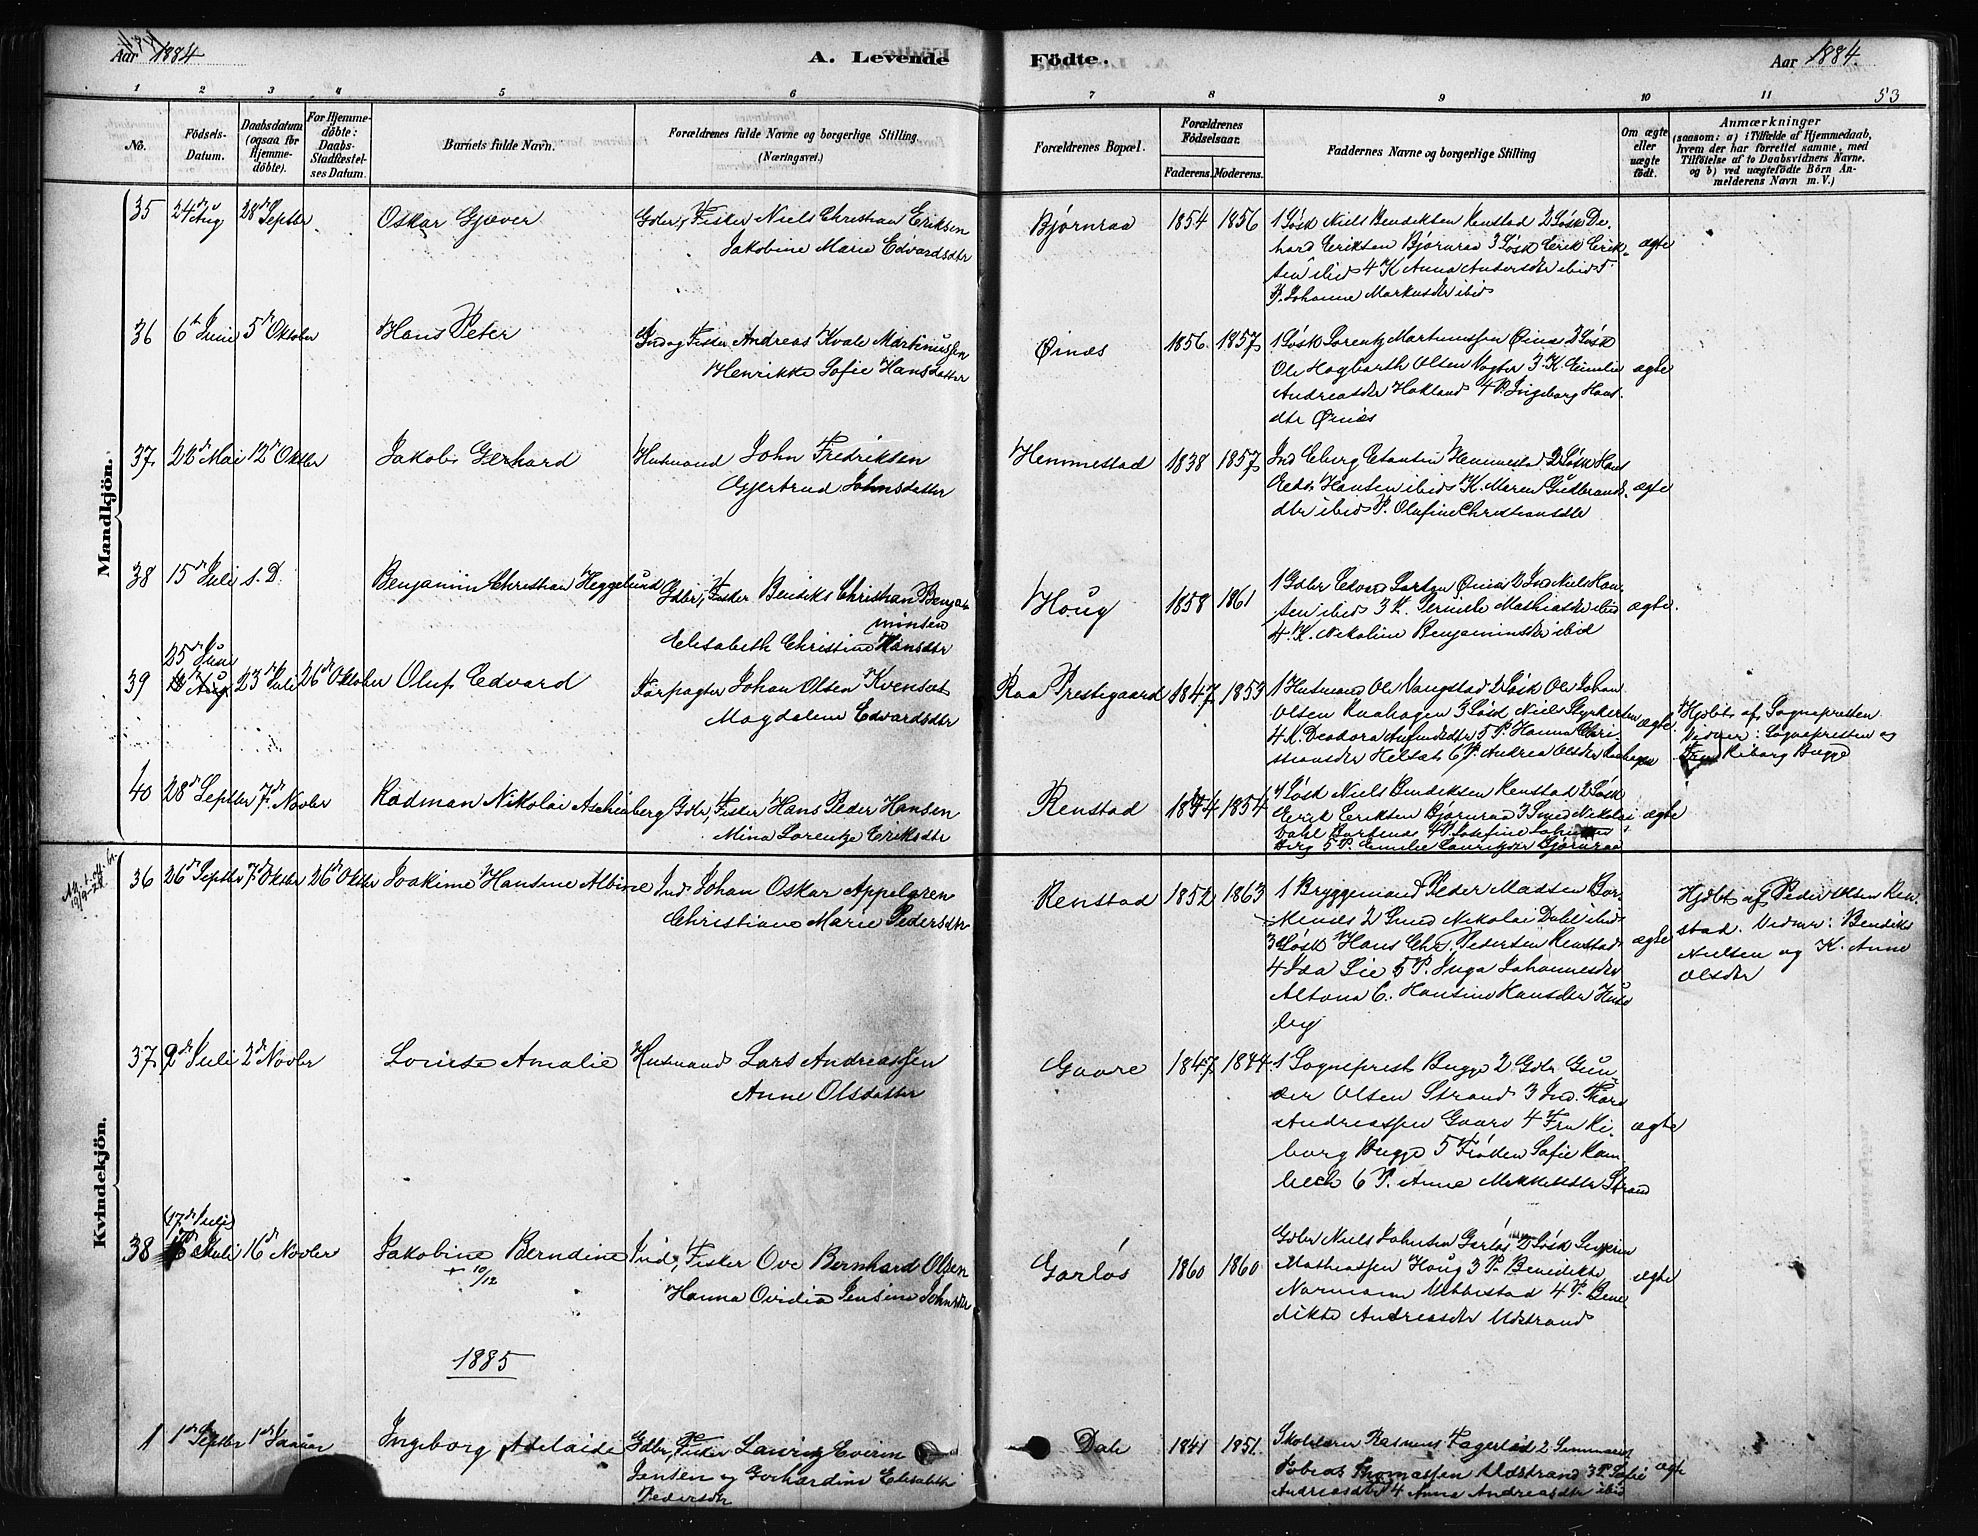 Aar 1884
A. Levende
Födte.
Aar 1884.
53
1 2 3 4 5 6 7 8 9 10 11
No.
Födsels-Datum.
Daabsdatum (ogsaa for Hjemme-döbte).
For Hjemme-döbte: Daabs-Stadfæstel-ses Datum.
Barnets fulde Navn.
Forældrenes fulde Navne og borgerlige Stilling.
(Næringsvei.)
Forældrenes Bopæl.
Forældrenes Födselsaar.
Faderens. Moderens.
Faddernes Navne og borgerlige Stilling
Om ægte eller uægte født.
Anmærkninger
(saasom: a) i Tilfælde af Hjemmedaab, hvem der har forrettet samme, med Tilföielse af to Daabsvidners Navne. og b) ved uægtefödte Börn An-melderens Navn m. V.)
Mandkjön.
35 24de Aug 28de Septbr Oskar Gjæver Gdbr, Fisker Niels Christian Eriksen
Jakobine Marie Edvardsdtr
Bjørnraa 1854 1856 1 Gdsk Niels Bendiksen Renstad 2 Gdsk
Eriksen Bjørnraa 3 Gdsk Erik Erik-
sen ibid 4 K Anna Andersdtr ibid 5
P. Johanne Markusdtr ibid
ægte
36 6te Juni 5te Oktober Hans Peter Ind og Fisker Andreas Kvale Martinussen
Henrikke Sofie Hansdatter
Øinæs 1856 1857 1 Gdsk Lorentz Martinussen Øinæs 2 Gdsk
Ole Hagbarth Olsen Vogter 3. K. Emilie
Andreasdtr Hokland 4 P. Ingeborg Hans-
dtr Øinæs
ægte
37. 28de Mai 12te Oktbr Jakob Gerhard Husmand John Fredriksen
Gjertrud Johnsdatter
Hemmestad 1838 1857 Ind Hemmestad 2 Gdsk Hans
Hansen ibid K. Maren Gudbrands-
dtr ibid P. Olufine Christiansdtr
ægte
38 15de Juli s. D. Benjamin Christian Heggelund Gdbr, Fisker Bendiks Christian Benja-
minsen
Elisabeth Christine Hansdtr
Houg 1858 1861 1 Gdbr Edvard Larsen Øinæs 2 Ind Niels Han-
sen ibid 3 K. Pernille Mathiasdtr ibid
4. K. Nikoline Benjaminsdtr ibid
ægte
39 25de Juni
23de Juli 26de Oktober Oluf Edvard Forpagter Johan Olsen Kvensæt
Magdalene Edvardsdtr
Raa Prestegaard 1847 1853 1 Husmand Ole Vangstad 2 Gdsk Ole Johan
Olsen Raahagen 3 Gdsk Niels Styrkersen
4 K. Deodora 5 P. Hanna Chri-
stiansdtr 6 P. Andrea Olsdtr Raahagen
ægte Hjdbt af Sognepresten.
Vidner: Sognepresten og
Fru Riborg Bugge
40 28de Septbr 7de Novbr Radman Nikolai Aschenberg Gdbr, Fisker Hans Peder Hansen
Mina Lorentze Eriksdtr
Renstad 1854 1854 1 Gdsk Niels Bendiksen Renstad 2 Gdsk
Erik Eriksen Bjørnraa 3 Smed Nikolai
Dahl 4 P. Josefine
5 P. Emilie Lauritzdtr Bjørnraa
ægte
Kvindekjön.
36 26de Septbr 7de Oktbr 26de Oktbr Joakime Hansine Albine Ind Johan Oskar Appelgren
Christiane Marie Pedersdtr
Renstad 1852 1863 1 Bryggemand Peder Madsen Bor-
2 Smed Nikolai Dahl ibid
3 Gdsk Hans Chr. Pedersen Renstad
4 Ida Lie 5 P. Inga Johannesdtr
Altona 6. Hansine Hansdtr Huse-
by
ægte Hjdbt af Peder Olsen Ren-
stad. Vidner: Bendiks
Nielsen og K. Anne
Olsdtr
37. 9de Juli 2de Novbr Louise Amalie Husmand Lars Andreassen
Anne Olsdatter
Gaare 1847 1844 1 Sogneprest Bugge 2 Gdbr Gun-
der Olsen Strand 3 Ind. Thore
Andreassen Gaare 4 Fru Ri-
borg Bugge 5 Frøken Sofie Ram-
bech 6 P. Anne Mekkelsdtr Strand
ægte
38 (17de Juli)
Juli 16de Novbr Jakobine Berndine
+ 10/12
Ind, Fisker Ove Bernhard Olsen
Hanna Ovidia Jensine Johnsdtr
Garlös 1860 1860 Gdbr Niels Johnsen Garlös 2 Gdsk Severin
Mathiassen Houg 3 P. Benedikte
Normann Mebbestad 4 P. Bene-
dikte Andreasdtr Udstrand
ægte
1885
1 1de Septbr 1de Januar Ingeborg Adelaide Gdbr, Fisker Lauritz Everin
Jensen og Gerhardine Elisabeth
Pedersdtr
Dale 1841 1851 Skolelærer Rasmus Fagerland 2 Seminarist
Tobias Thomassen Udstrand 3 P. Sofie
Andreasdtr 4 Anna Andreasdtr ibid
ægte